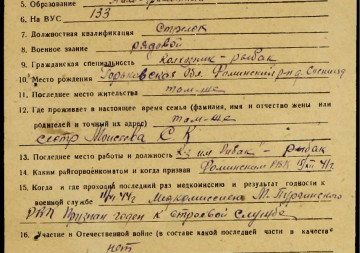 5. Образование
6. На ВУС 133
7. Должностная квалификация Стрелок
8. Военное звание рядовой
9. Гражданская специальность колхозник-рыбак
10. Место рождения Горьковская Обл. Фоминский р-н д.
11. Последнее место жительства там-же
12. Где проживает в настоящее время семья (фамилия, имя и отчество жены или
родителей и точный их адрес) там-же
сестр Моисеева С К
13. Последнее место работы и должность К-з им рыбак
14. Каким райгорвоенкоматом и когда призван Фоминским РВК
15. Когда и где проходил последний раз медкомиссию и результат годности к
военной службе Медкомиссией М.
РВК Признан годен к строевой службе
16. Участие в Отечественной войне (в составе какой последней части и в качестве
нет